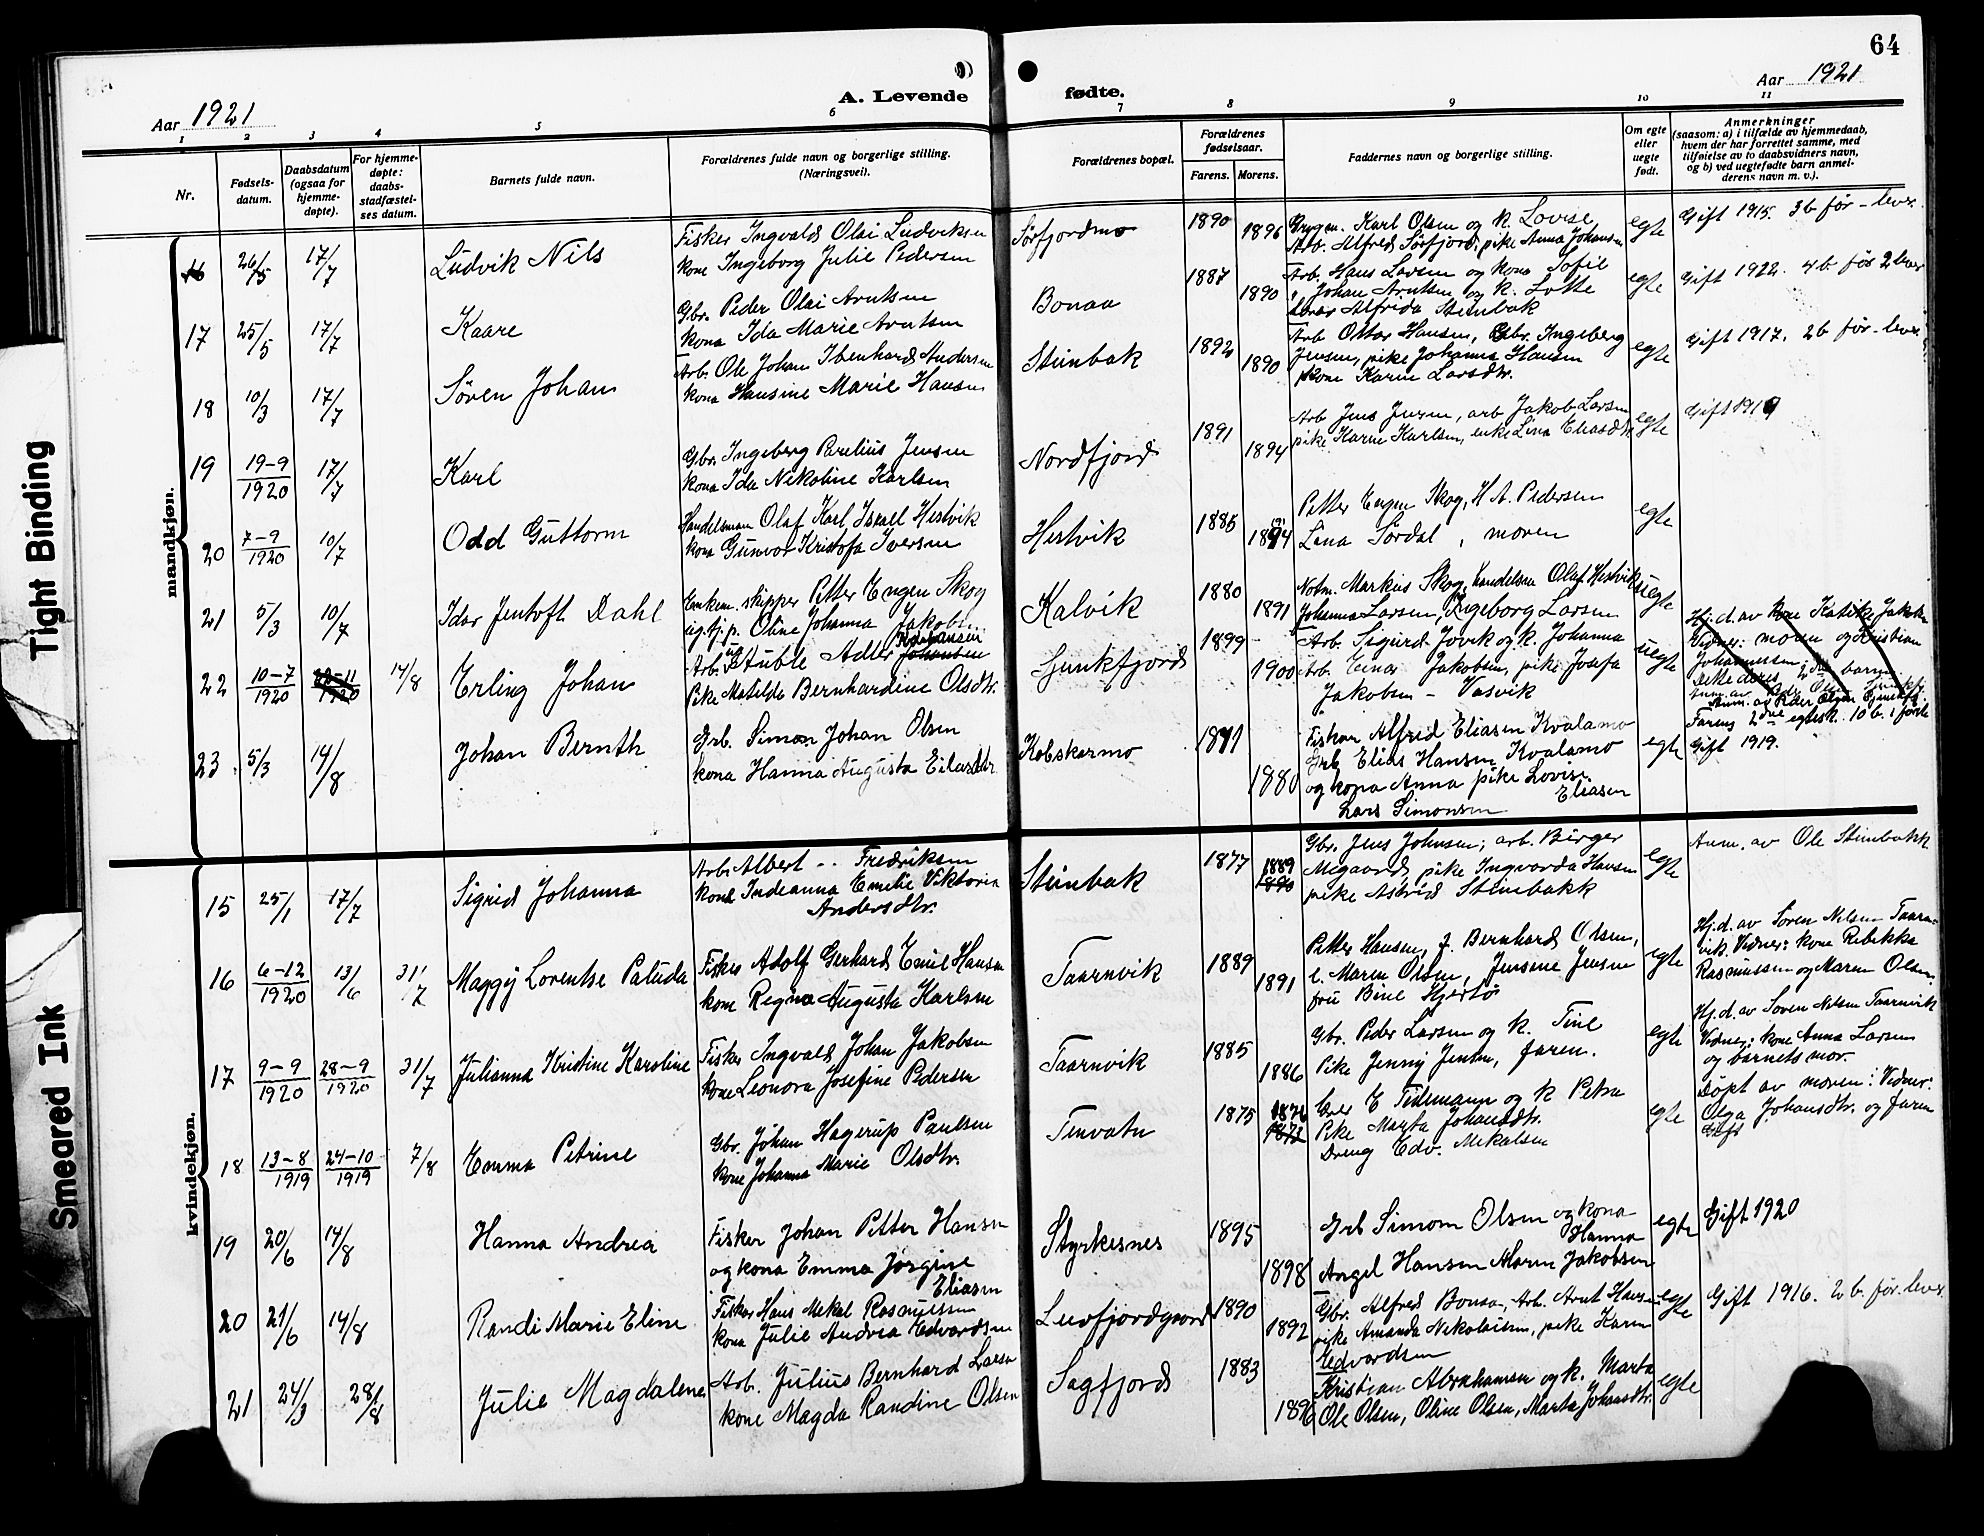 64
Aar 1921
A. Levende
fødte.
Aar 1921
1 2 3 4 5 6 7 8 9 10 11
Nr.
Fødsels-
datum.
Daabsdatum
(ogsaa for
hjemme-
døpte).
For hjemme-
døpte:
daabs-
stadfæstel-
ses datum.
Barnets fulde navn.
Forældrenes fulde navn og borgerlige stilling.
(Næringsvei).
Forældrenes bopæl.
Forældrenes
fødselsaar.
Farens. Morens.
Faddernes navn og borgerlige stilling.
Om egte
eller
uegte
født.
Anmerkninger
(saasom: a) i tilfælde av hjemmedaab,
hvem der har forrettet samme, med
tilføielse av to daabsvidners navn,
og b) ved uegtefødte barn anmel-
derens navn m. v.).
mandkjøn.
16 26/5 17/7 Ludvik Nils
Fisker Ingvald Olai Ludviksen
kone Ingeborg Julie Pedersen
Sørfjordmo 1890 1896
Karl Olsen og k. Lovise
Arb. Alfred Sørfjord, pike Anna Johansen
egte
Gift 1915. 3 b før - lever
17 25/5 17/7 Kaare
Gbr. Peder Olai Arntsen
kona Ida Marie Arntsen
Bonaa 1887 1890
Arb. Hans Larsen og kona Sofie
" Johan Arntsen og k. Lotte
Alfrida Steinbak
egte
Gift 1922. 4 b før 2 lever
18 10/3 17/7 Søren Johan
Arb. Ole Johan Ibenhard Andersen
kona Hansine Marie Hansen
Steinbak 1892 1890
Arb Ottar Hansen, Gbr. Ingeberg
Jensen, pike Johanna Hansen
kone Karen Larsdtr.
egte
Gift 1917. 2 b før - lever
19 19-9/1920 17/7 Karl
Gbr. Ingeberg Parelius Jensen
kona Ida Nikoline Karlsen
Nordfjord 1891 1894
Arb Jens Jensen, arb Jakob Larsen
pike Karen Karlsen, enke Lina Eliasdtr
egte
Gift 1919
20 7-9/1920 10/7 Odd Guttorm
Handelsman Olaf Karl Israel Hestvik
kona Gunvor Kristofa Iversen
Hestvik 1885 1894
Petter Engen Skog, H A. Pedersen
Lina Sørdal, moren
egte
21 5/3 10/7 Idar Jentoft Dahl
Enkem. skipper Petter Engen Skog
ug. tj. p. Oline Johanna Jakobs.
Kalvik 1880 1891
Notm. Markus Skog, handelsm Olaf Hestvik
Johanna Larsen, Ingeborg Larsen
uegte
22 10-7/1920 28-11/1920 14/8 Erling Johan
Arb. Stuble Adler Johansen
Pike Matilde Bernhardine Olsdtr.
Gjunkfjord 1899 1900
Arb. Sigurd Jovik og k. Johanna
Arb. Einar Jakobsen, pike Josefa
Jakobsen - Vasvik
uegte
Hj.d. av kone Katrike Jakobs
Vidner: moren og Kristian
Johannessen; barn
Dette deres
Anm. av Peder Olsen Gjunkfj.
23 5/3 14/8 Johan Bernth
Grb. Simon Johan Olsen
kona Hanna Augusta Eilertsdtr
Kobskarmo 1871 1880
Fisker Alfred Eliasen Kvalamo
Grb Elias Hansen Kvalamo
og kona Anna pike Lovise
Eliasen
Lars Simonsen
egte
Farens 2den egtesk. 10 b. i første
Gift 1919.
kvindekjøn.
15 25/1 17/7 Sigrid Johanna
Arb. Albert - - Fredriksen
kone Indeanna Emelie Viktoria
Andersdtr.
Steinbak 1877 1889 1890
Gbr. Jens Johnsen; arb. Birger
Megaard, pike Ingvarda Hansen
pike Astrid Steinbakk
egte
Anm. av Ole Steinbakk
16 6-12/1920 13/6 31/7 Maggy Lorentse Paluda
Fisker Adolf Gerhard Emil Hansen
kone Regna Augusta Karlsen
Taarnvik 1889 1891
Petter Hansen, f. Bernhard Olsen,
e. Maren Olsen, Jensine Jensen
fru Bine Hjertø
egte
Hj.d. av Søren Nilsen Taarn-
vik. Vidner: kone Rebekka
Rasmussen og Maren Olsen
17 9-9/1920 28-9/1920 31/7 Julianna Kristine Karoline
Fisker Ingvald Johan Jakobsen
kone Leonora Josefine Pedersen
Taarnvik 1885 1886
Gbr. Peder Larsen og k. Tine
Pike Jenny Jensen, faren.
egte
Hj.d. av Soren Nilsen Taarnvik
Vidner: kone Anna Larsen
og barnets mor.
18 13-8/1919 24-10/1919 7/8 Emma Petrine
Gbr. Johan Hagerup Paulsen
kone Johanna Marie Olsdtr.
Tenvatn 1875 1876 1873
E Tidemann og k Petra
Pike Marta Johansdtr.
Dreng Edv. Mikalsen
egte
Døpt av moren: Vidner:
Olga Johansdtr. og faren
Gift
19 20/6 14/8 Hanna Andrea
Fisker Johan Petter Hansen
og kona Emma Jørgine
Eliasen
Styrkesnes 1895 1898
Grb Simon Olsen og kona
Hanna
Angel Hansen Maren Jakobsen
egte
Gift 1920
20 21/6 14/8 Randi Marie Eline
Fisker Hans Mekal Rasmussen
kona Julie Andrea Edvardsen
Leirfjordgaard 1890 1892
Gbr. Alfred Bonsa, Arb. Arnt Hansen
pike Amanda Nikolaisen, pike Karen
Edvardsen
egte
Gift 1916. 2 b. før. lever
21 24/3 28/8 Julie Magdalene
Arb. Julius Bernhard Larsen
kone Magda Randine Olsen
Sagfjord 1883 1896
Kristian Abrahamsen og k. Marta
Ole Olsen, Oline Olsen, Marta Johansdtr.
egte
Tight Binding
Smeared Ink